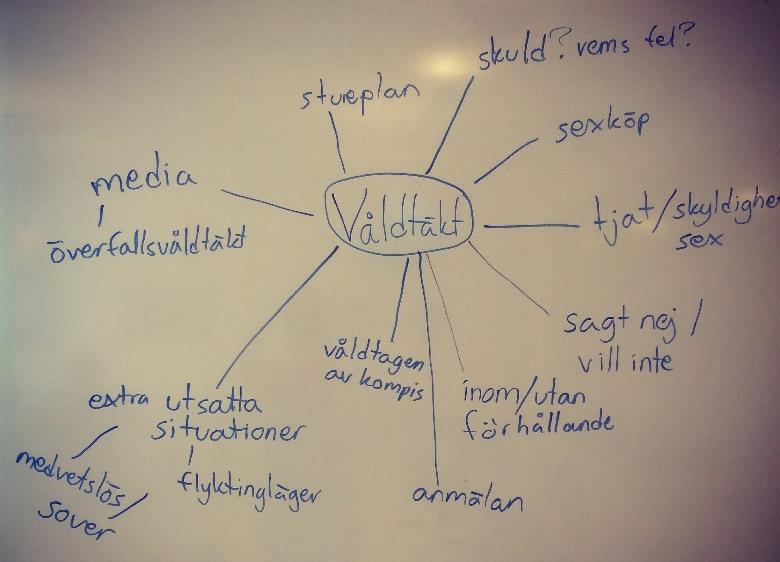 skuld? vems fel?
stureplan
sexköp
media
överfallsvåldtäkt
Våldtäkt
tjat/skyldighe
sex
sagt nej /
vill inte
våldtagen
av kompis
inom/utan
förhållande
extra utsatta
situationer
medvetslös
sover
flyktingläger
anmälan